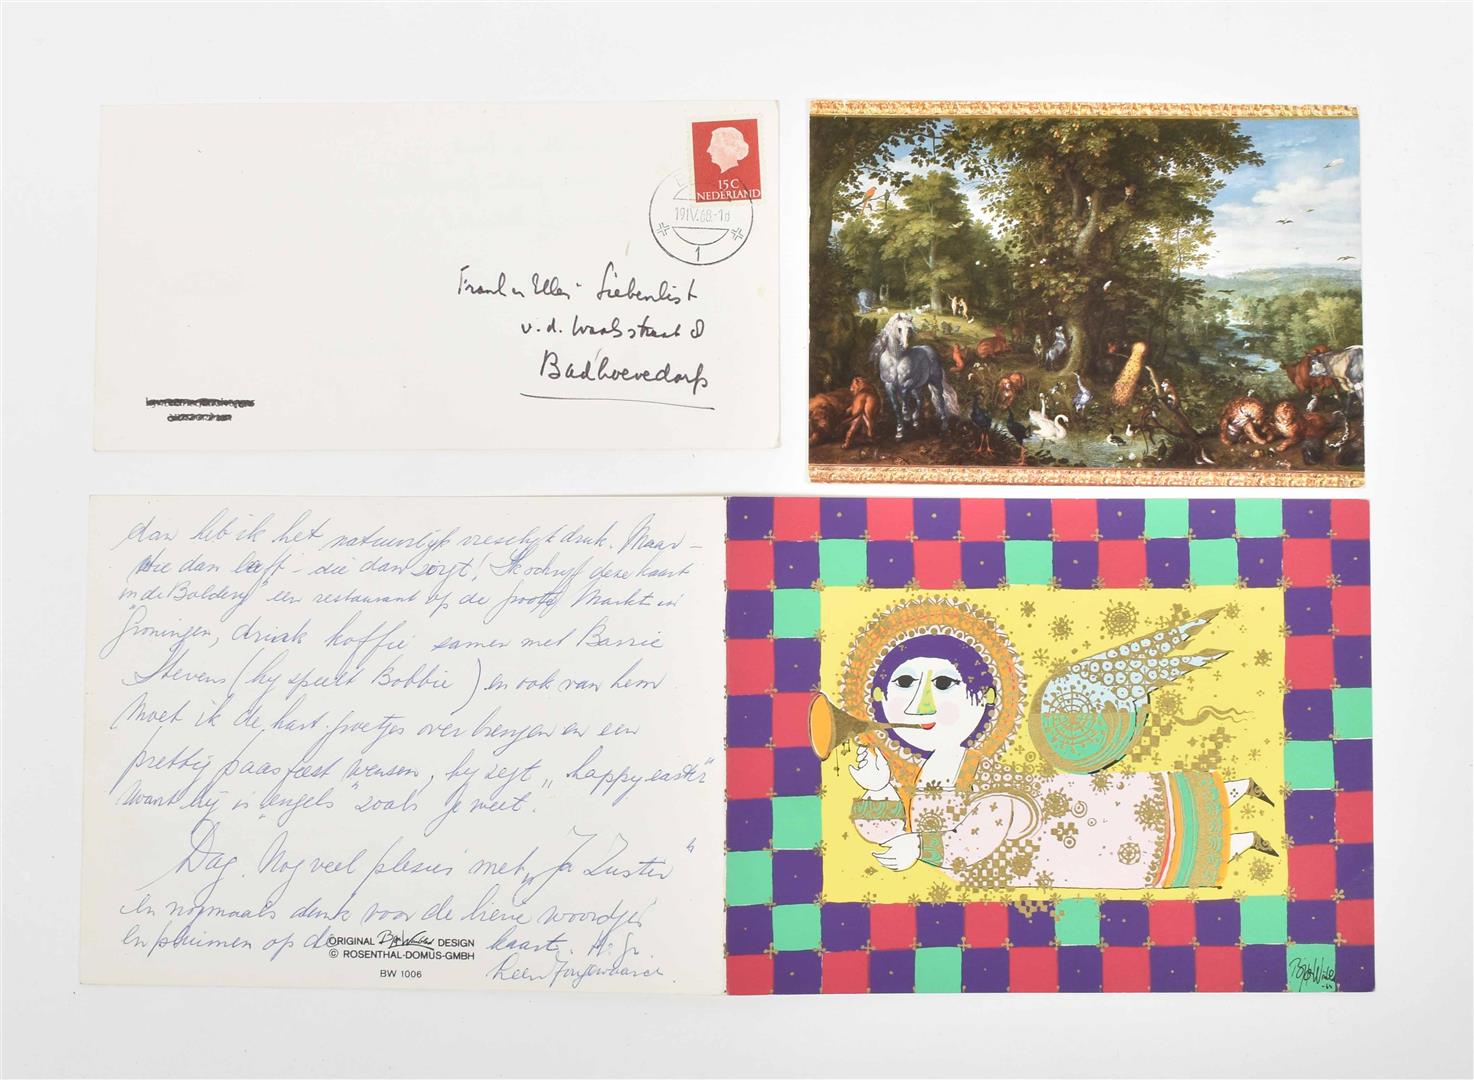 15 C
NEDERLAND
19.IV.68.-18
1
Frank en Ellen Siebenlist
v.d. Waalsstraat 8
Badhoevedorp
dan heb ik het natuurlijk vreselijk druk. Maar -
wie dan leeft - die dan zorgt! Ik schrijf deze kaart
in de "Bolderij" een restaurant op de Grote Markt in
Groningen, drink koffie samen met Barrie
Stevens (hij speelt Bobbie) en ook van hem
moet ik de hart. groetjes overbrengen en een
prettig paasfeest wensen, hij zegt „happy easter"
want hij is "engels" zoals je weet.
Dag. Nog veel plezier met „Ja Zuster"
en nogmaals dank voor de lieve woordjes
en pluimen op de kaart. H. gr.
Leen Jongewaard
ORIGINAL Bjørn Wiinblad DESIGN
© ROSENTHAL-DOMUS-GMBH
BW 1006